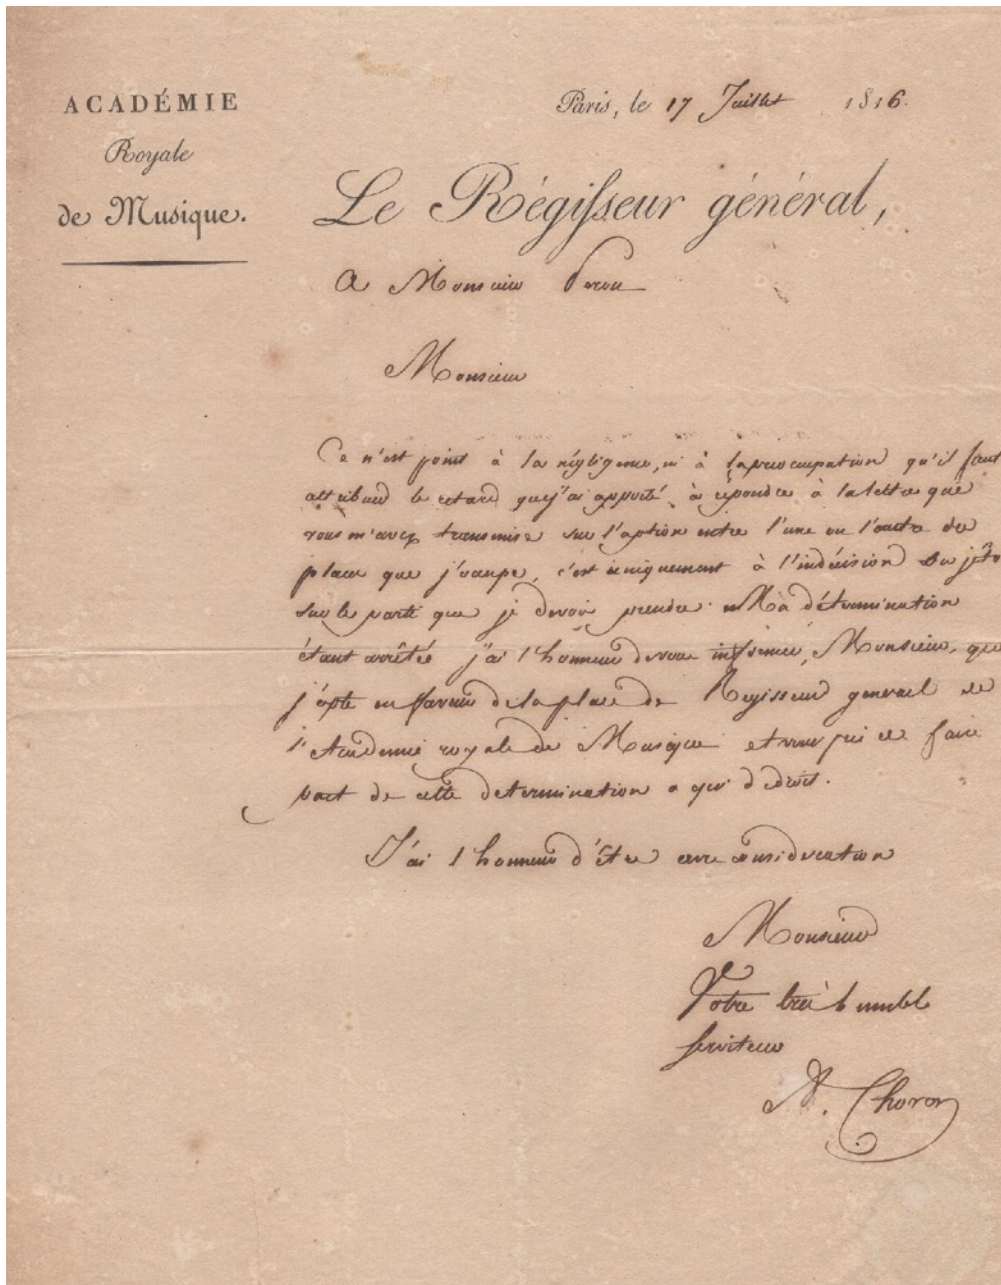 ACADÉMIE
Royale
de Musique.
Paris, le 17 Juillet 1816.
Le Régisseur général,
A Monsieur
Monsieur
Ce n'est point à la négligence, ni à la préocupation qu'il faut
attribuer le retard que j'ai apporté à répondre à la lettre que
vous m'avez transmise sur l'option entre l'une ou l'autre des
places que j'occupe, c'est uniquement à l'indécision
sur le parti que je devois prendre. Ma détermination
étant arrêtée j'ai l'honneur de vous informer, Monsieur, que
j'opte en faveur de la place de Regisseur general de
l'Academie royale de Musique et vous prie de faire
part de cette determination a qui de droit.
J'ai l'honneur d'être avec consideration
Monsieur
Votre très humble
serviteur
A. Choron